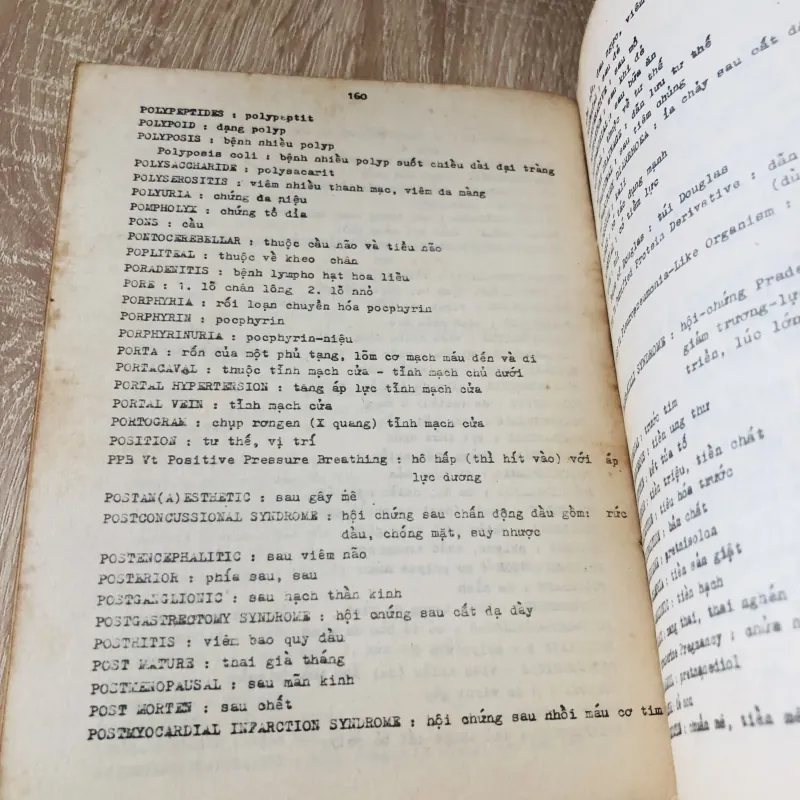 160
POLYPEPTIDES : polypeptit
POLYPOID : dạng polyp
POLYPOSIS : bệnh nhiều polyp
Polyposis coli : bệnh nhiều polyp suốt chiều dài đại tràng
POLYSACCHARIDE : polysacarit
POLYSEROSITIS : viêm nhiều thanh mạc, viêm đa màng
POLYURIA : chứng đa niệu
POMPHOLYX : chứng tổ đỉa
PONS : cầu
PONTOCEREBELLAR : thuộc cầu não và tiểu não
POPLITEAL : thuộc về kheo chân
PORADENITIS : bệnh lympho hạt hoa liễu
PORE : 1. lỗ chân lông 2. lỗ nhỏ
PORPHYRIA : rối loạn chuyển hóa pocphyrin
PORPHYRIN : pocphyrin
PORPHYRINURIA : pocphyrin-niệu
PORTA : rốn của một phủ tạng, lõm cơ mạch máu đến và đi
PORTACAVAL : thuộc tĩnh mạch cửa - tĩnh mạch chủ dưới
PORTAL HYPERTENSION : tăng áp lực tĩnh mạch cửa
PORTAL VEIN : tĩnh mạch cửa
PORTOGRAM : chụp rơngen (X quang) tĩnh mạch cửa
POSITION : tư thế, vị trí
PPB Vt Positive Pressure Breathing : hô hấp (thì hít vào) với áp
lực dương
POSTAN(A)ESTHETIC : sau gây mê
POSTCONCUSSIONAL SYNDROME : hội chứng sau chấn động đầu gồm: rức
đầu, chóng mặt, suy nhược
POSTENCEPHALITIC : sau viêm não
POSTERIOR : phía sau, sau
POSTGANGLIONIC : sau hạch thần kinh
POSTGASTRECTOMY SYNDROME : hội chứng sau cắt dạ dầy
POSTHITIS : viêm bao quy đầu
POST MATURE : thai già tháng
POSTMENOPAUSAL : sau mãn kinh
POST MORTEN : sau chết
POSTMYOCARDIAL INFARCTION SYNDROME : hội chứng sau nhồi máu cơ tim
sau bữa ăn
dẫn lưu tư thế
ỉa chảy sau cắt
túi Douglas
Purified Protein Derivative : dẫn
Pleuropneumonia-Like Organism :
SYNDROME : hội-chứng
giảm trương-lực
triển, lúc lớn
trước tim
tiền ung thư
tiền triệu, tiền chất
tiêu hóa trước
tiền sản giật
thai nghén
Pregnancy : chửa
tiền mê